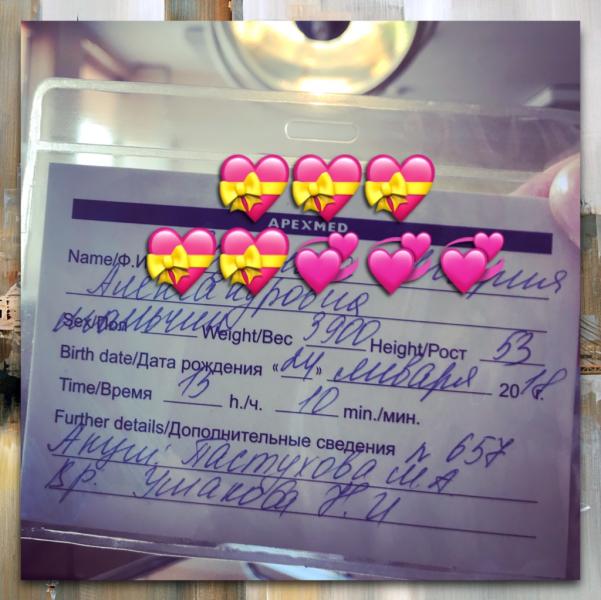 APEXMED
Name/Ф.И
Александровна
Sex/Пол мальчик Weight/Вес 3900 Height/Рост 53
Birth date/Дата рождения «24» января 2018 г.
Time/Время 15 h./ч. 10 min./мин.
Further details/Дополнительные сведения п 657
Акуш. Пастухова М А
Вр. Ушакова Н. И